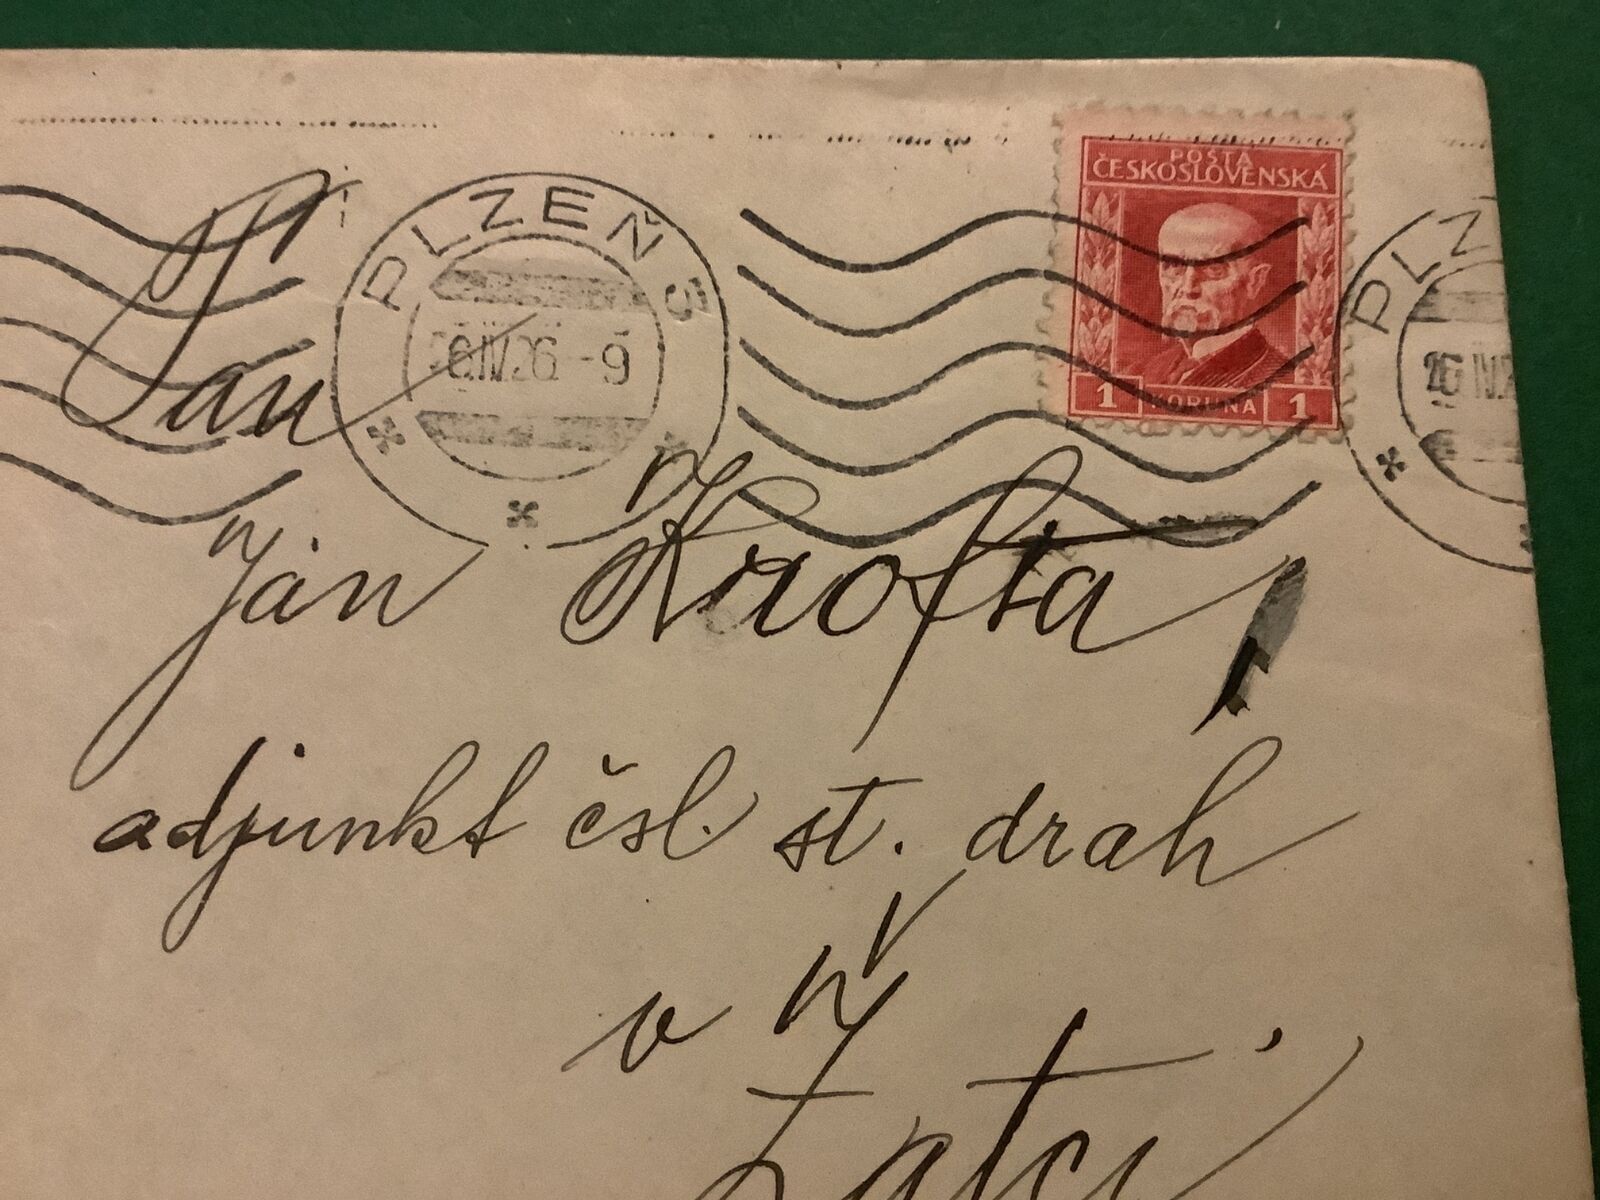 POŠTA
ČESKOSLOVENSKÁ
1 KORUNA 1
PLZEŇ 3
26.IV.26.-9
PLZ
26.IV.2
Pan
Ján Krofta,
adjunkt čsl. st. drah
v
Žatci